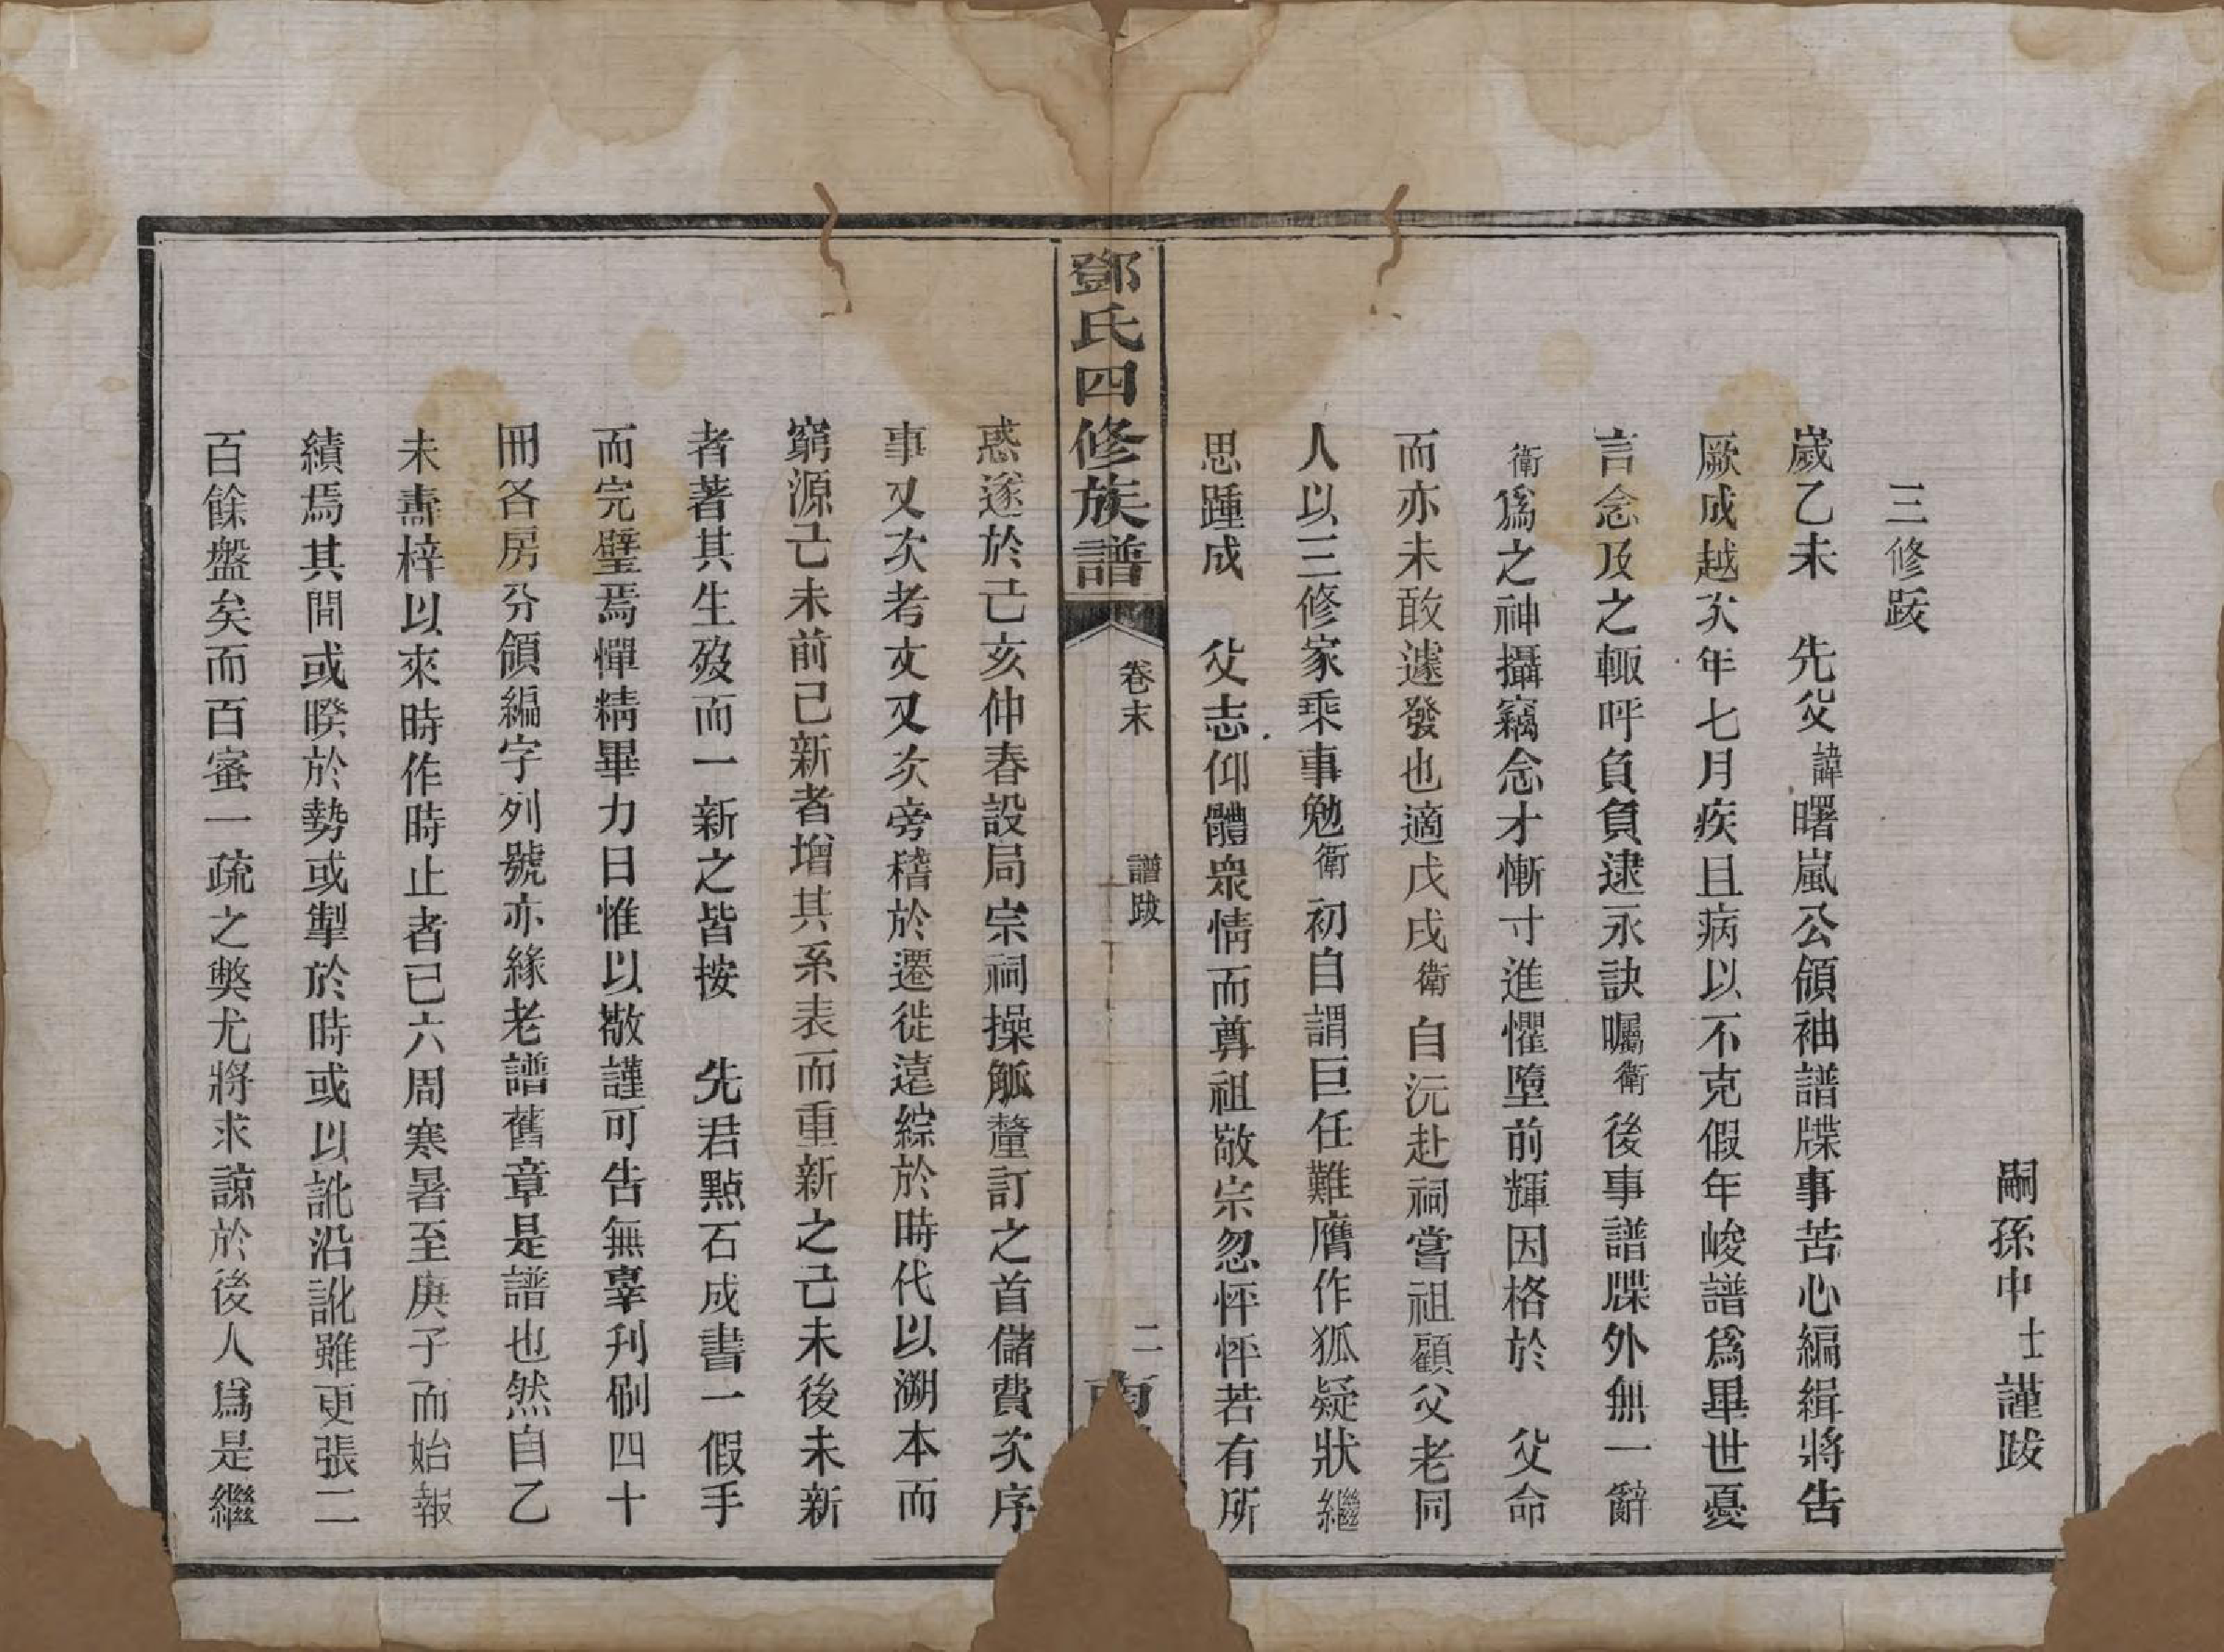 嗣孫中士謹跋
三修跋
嵗乙未　先父諱曙嵐公領袖譜牒事苦心編緝將告
厥成越次年七月疾且病以不克假年峻譜爲畢世憂
言念及之輙呼負負逮永訣囑衛後事譜牒外無一辭
衛爲之神攝竊念才慚寸進懼墮前輝因格於　父命
而亦未敢遽發也適戊戌衛自沅赴祠嘗祖顧父老同
人以三修家乘事勉衛初自謂巨任難膺作狐疑狀繼
思踵成　父志仰體衆情而尊祖敬宗忽怦怦若有所
鄧氏四修族譜
卷末
譜跋
二
惑遂於己亥仲春設局宗祠操觚釐訂之首儲費次序
事又次考文又次旁稽於遷徙遠綜於時代以溯本而
窮源己未前已新者增其系表而重新之己未後未新
者著其生歿而一新之皆按　先君點石成書一假手
而完璧焉憚精畢力日惟以敬謹可告無辜刋刷四十
冊各房分領編字列號亦緣老譜舊章是譜也然自乙
未壽梓以來時作時止者已六周寒暑至庚子而始報
績焉其間或暌於勢或掣於時或以訛沿訛雖更張二
百餘盤矣而百密一疏之獘尤將求諒於後人爲是繼